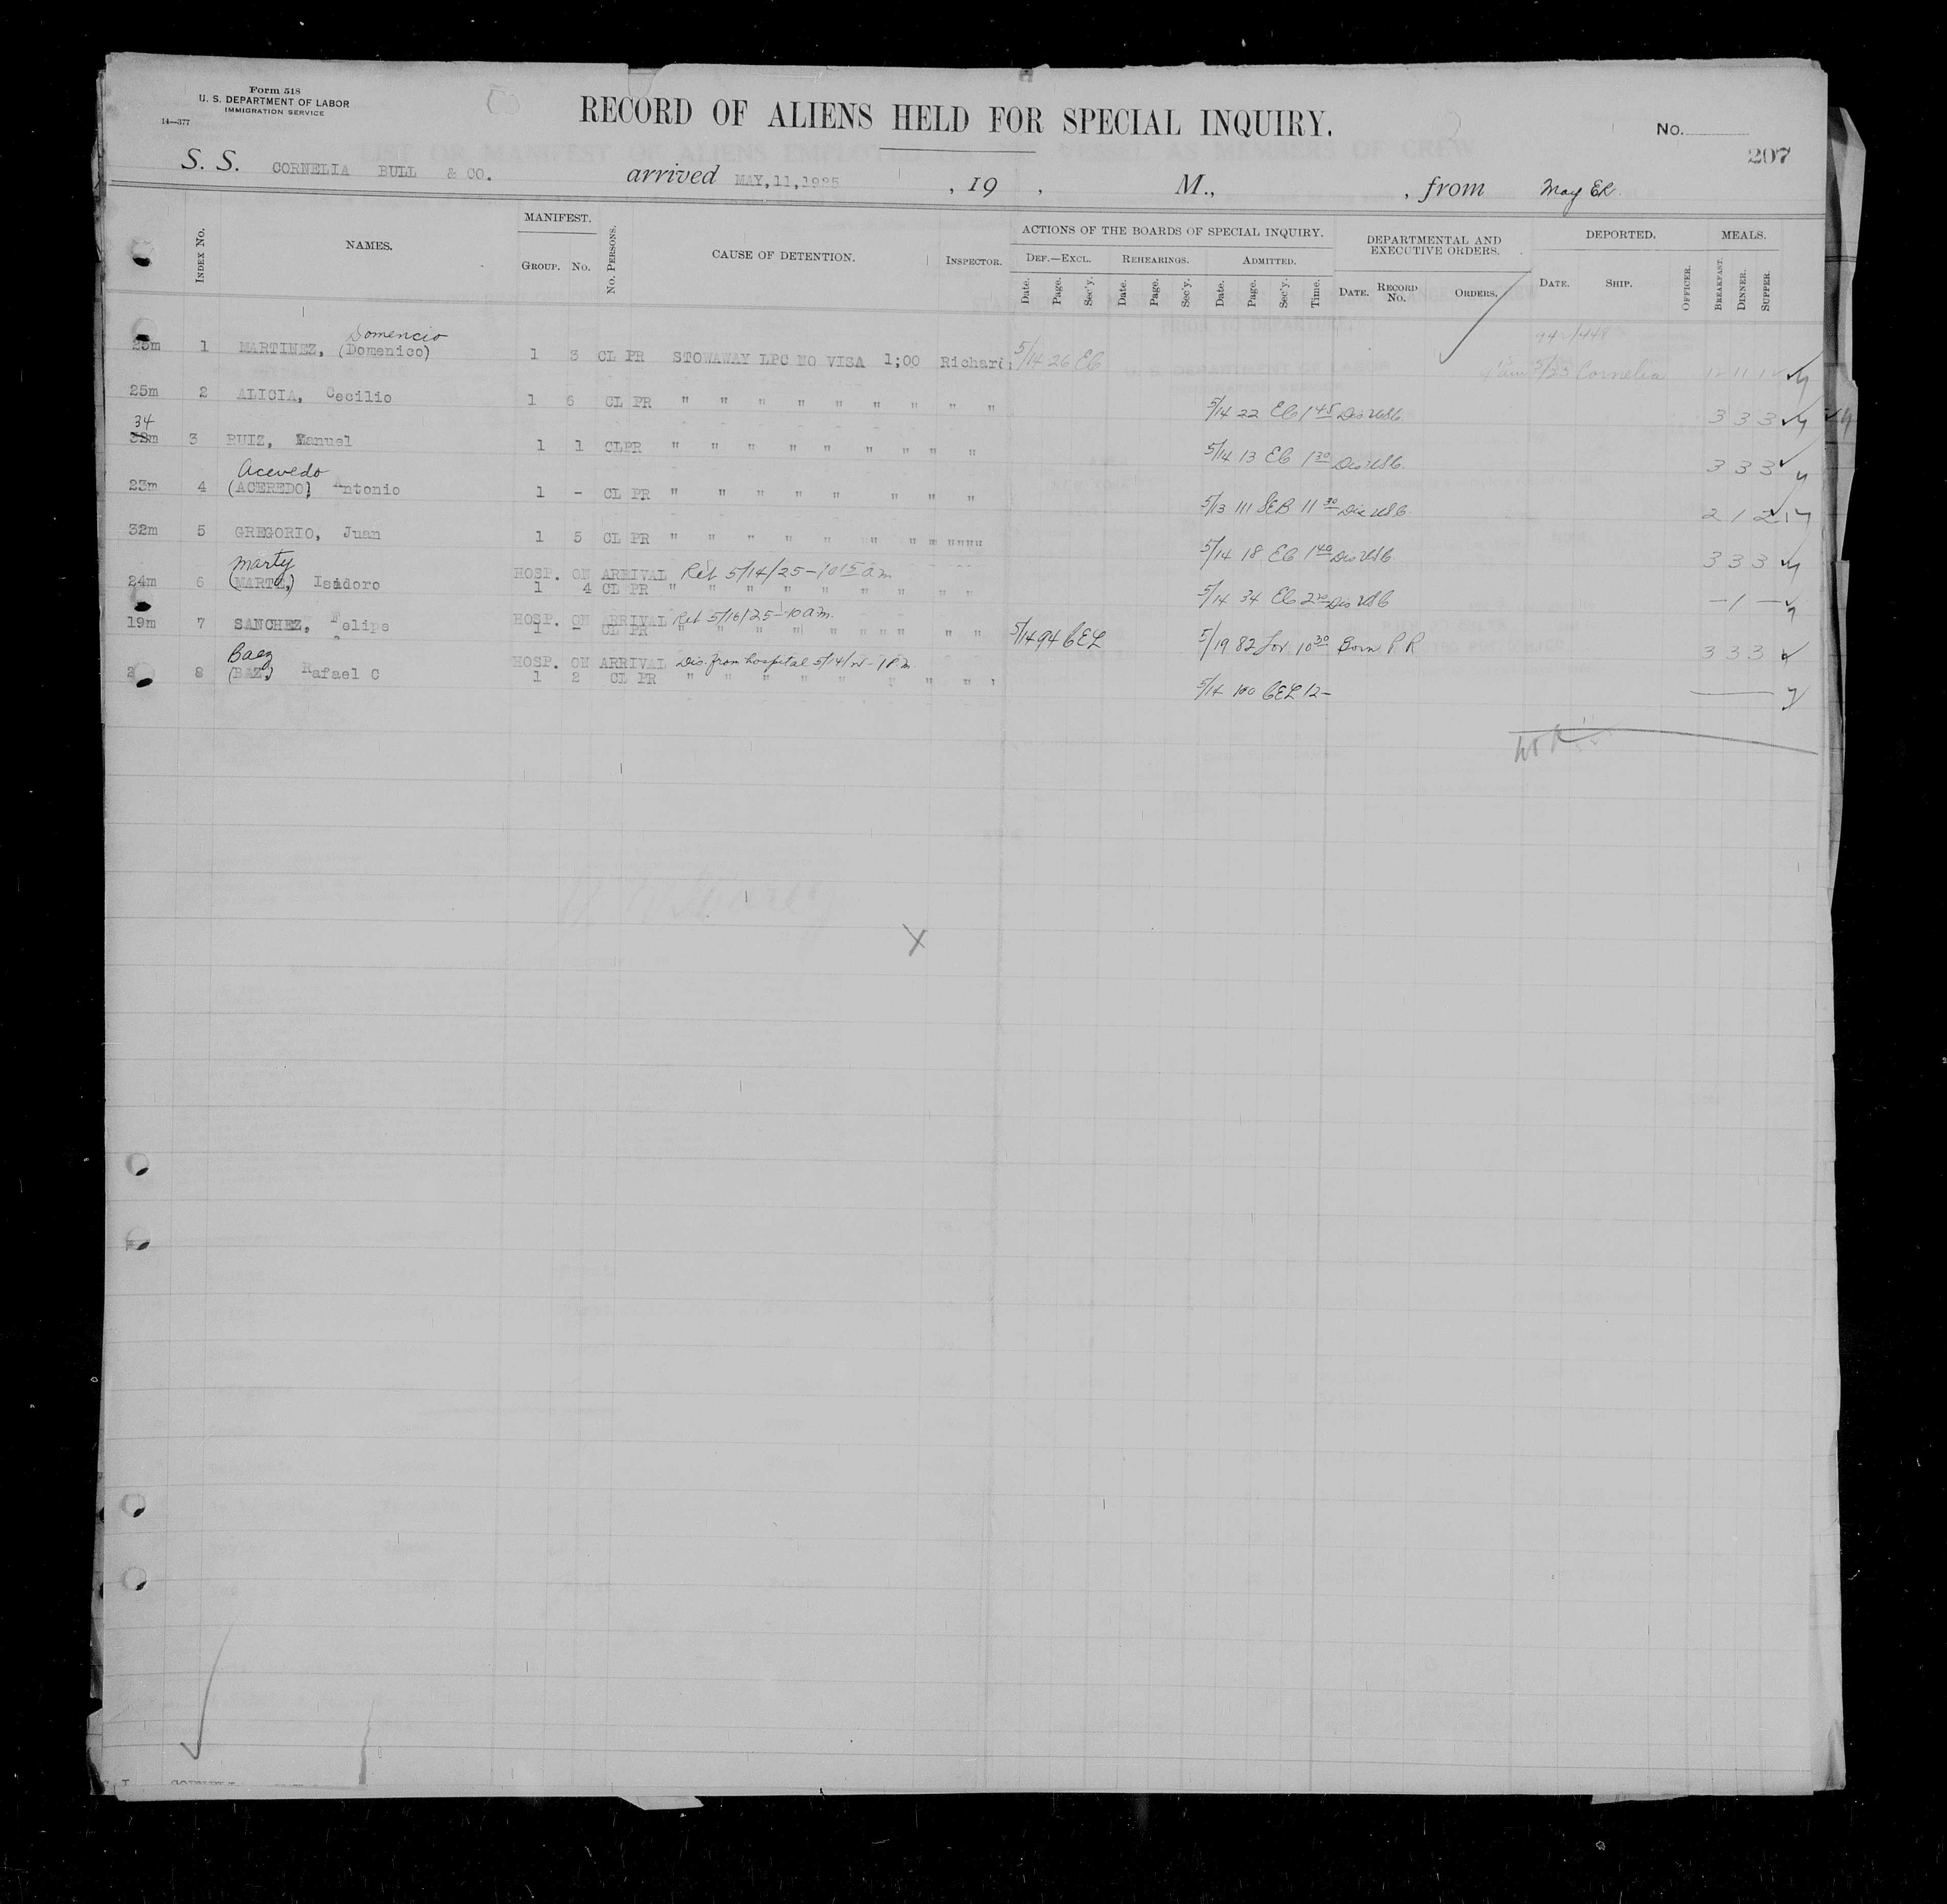 Form 518
U. S. DEPARTMENT OF LABOR
IMMIGRATION SERVICE
14—377
RECORD OF ALIENS HELD FOR SPECIAL INQUIRY.
No.
207
S. S. CORNELIA BULL & CO. arrived MAY,11,1925 , 19 , M., , from
INDEX No. NAMES. MANIFEST. GROUP. No. No. PERSONS. CAUSE OF DETENTION. INSPECTOR.
ACTIONS OF THE BOARDS OF SPECIAL INQUIRY. DEPARTMENTAL AND EXECUTIVE ORDERS. DEPORTED. MEALS.
DEF.—EXCL. REHEARINGS. ADMITTED.
Date. Page. Sec'y. Date. Page. Sec'y. Date. Page. Sec'y. Time. DATE. RECORD No. ORDERS. DATE. SHIP. OFFICER. BREAKFAST. DINNER. SUPPER.
Domencio
1 MARTINEZ, (Domenico) 1 3 CL PR STOWAWAY LPC NO VISA 1;00 Richard 5/14 26 EC Cornelia
25m 2 ALICIA, Cecilio 1 6 CL PR " " " " " " " " " 5/14 22 EC 1 45 Dis USC 3 3 3
34
3 RUIZ, Manuel 1 1 CLPR " " " " " " " " " 5/14 13 EC 1 30 Dis USC 3 3 3
Acevedo
23m 4 (ACEREDO) Antonio 1 - CL PR " " " " " " " " 5/13 111 SEB 11 30 Dis USC 2 1 2
32m 5 GREGORIO, Juan 1 5 CL PR " " " " " " " " " 5/14 18 EC 1 40 Dis USC 3 3 3
Marty
HOSP. ON ARRIVAL Rel 5/14/25-10 15 am
24m 6 (MARTE,) Isidoro 1 4 CL PR " " " " " " " " " 5/14 34 EC 2 20 Dis USC - 1 -
HOSP. ON ARRIVAL Rel 5/16/25-10 am.
19m 7 SANCHEZ, Felipe 1 - CL PR " " " " " " " " " 5/14 94 CEL 5/19 82 10 30 Born P R 3 3 3
Baez
HOSP. ON ARRIVAL Dis. from hospital 5/14/25-1 P.M.
8 (BAZ,) Rafael C 1 2 CL PR " " " " " " " " " 5/14 100 CEL 12-
X